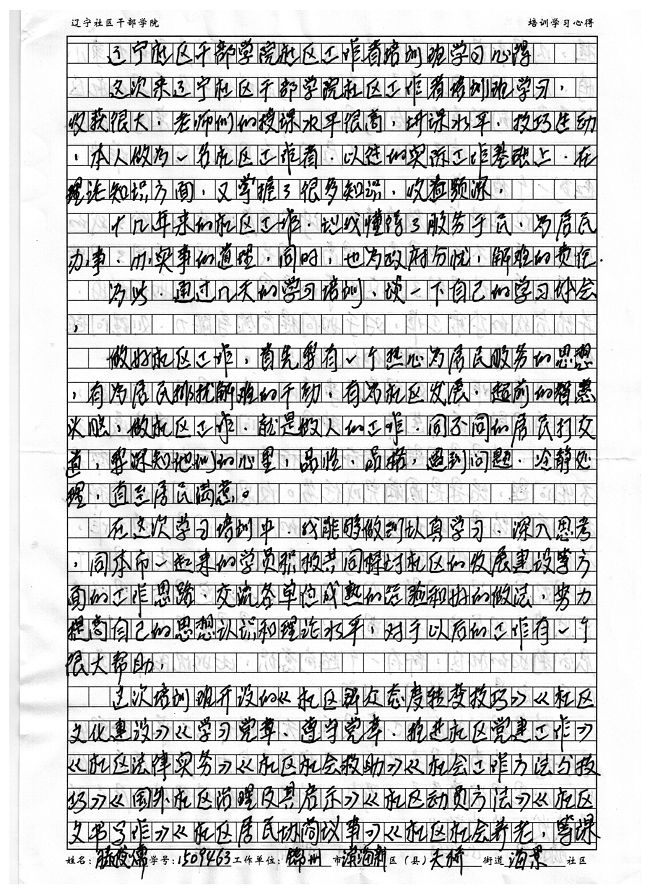 辽宁社区干部学院 培训学习心得
辽宁社区干部学院社区工作者培训班学习心得
这次来辽宁社区干部学院社区工作者培训班学习,
收获很大,老师们的授课水平很高,讲课水平,技巧生动
,本人做为一名社区工作者,以往的实际工作基础上,在
理论知识方面,又掌握了很多知识,收益颇深,
十几年来的社区工作,让我懂得了服务于民,为居民
办事,办实事的道理,同时,也为政府分忧,解难的责任.
为此,通过几天的学习培训,谈一下自己的学习体会
,
做好社区工作,首先要有一个热心为居民服务的思想
,有为居民排忧解难的干劲,有为社区发展,超前的智慧
头脑,做社区工作,就是做人的工作,同不同的居民打交
道,要深知他们的心里,品性,品格,遇到问题,冷静处
理,直至居民满意。
在这次学习培训中,我能够做到认真学习,深入思考
,同本市一起来的学员积极共同探讨社区的发展建设等方
面的工作思路,交流各单位成熟的经验和好的做法,努力
提高自己的思想认识和理论水平,对于以后的工作有一个
很大帮助,
这次培训班开设的《社区群众态度转变技巧》《社区
文化建设》《学习党章、遵守党章、推进社区党建工作》
《社区法律实务》《社区社会救助》《社会工作方法与技
巧》《国外社区治理及其启示》《社区动员方法》《社区
文书写作》《社区居民协商议事》《社区社会养老,等课
姓名: 学号:1509463 工作单位: 锦州 市 滨海新 区(县) 天桥 街道 海景 社区